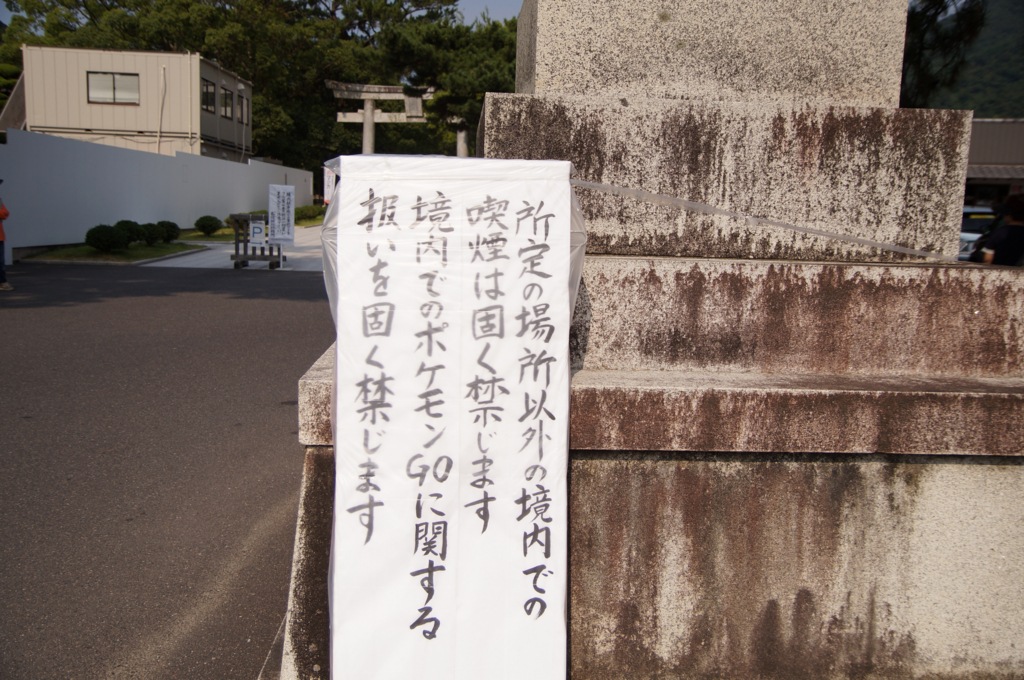 所定の場所以外の境内での
喫煙は固く禁じます
境内でのポケモンGOに関する
扱いを固く禁じます
P